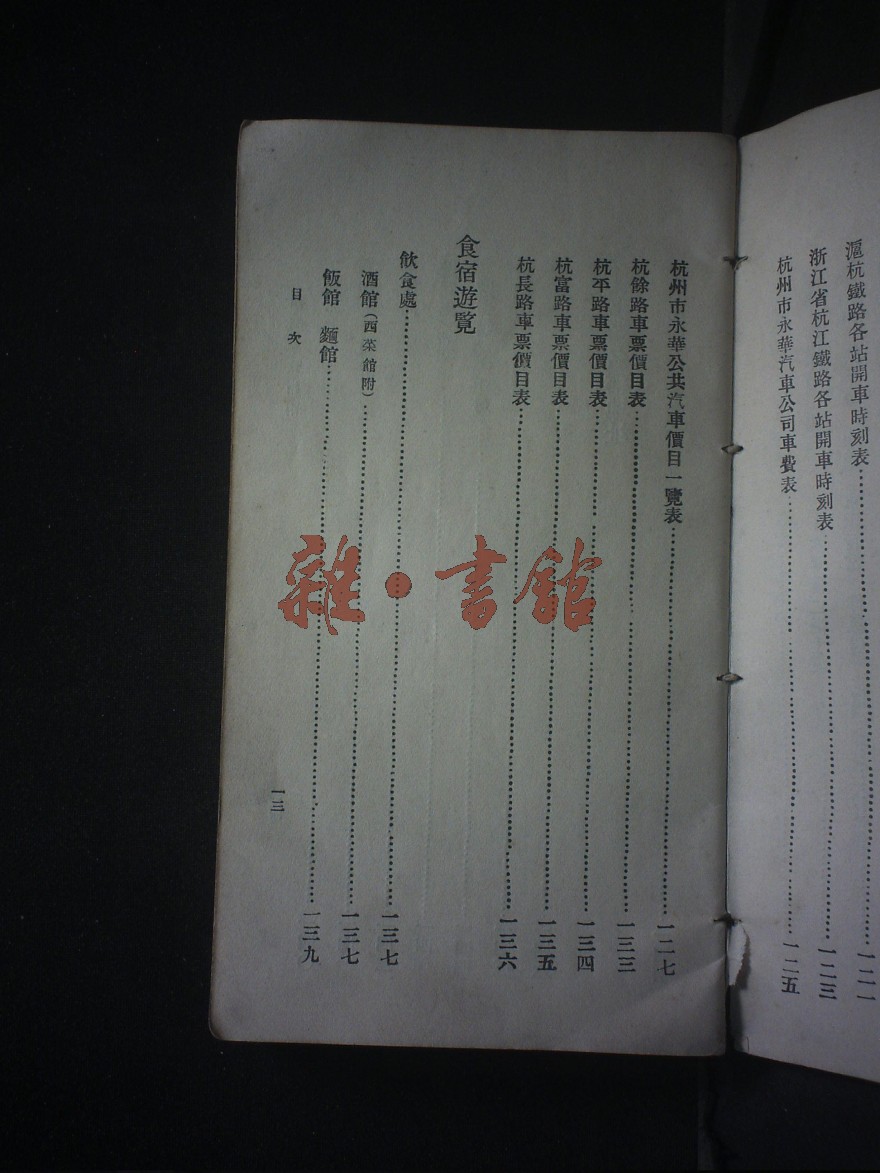 滬杭鐵路各站開車時刻表……一二一
浙江省杭江鐵路各站開車時刻表……一二三
杭州市永華汽車公司車費表……一二五
杭州市永華公共汽車價目一覽表……一二七
杭餘路車票價目表……一三三
杭平路車票價目表……一三四
杭富路車票價目表……一三五
杭長路車票價目表……一三六
食宿遊覽
飲食處……一三七
酒館（西菜館附）……一三七
飯館 麵館……一三九
目次
一三
雜·書館